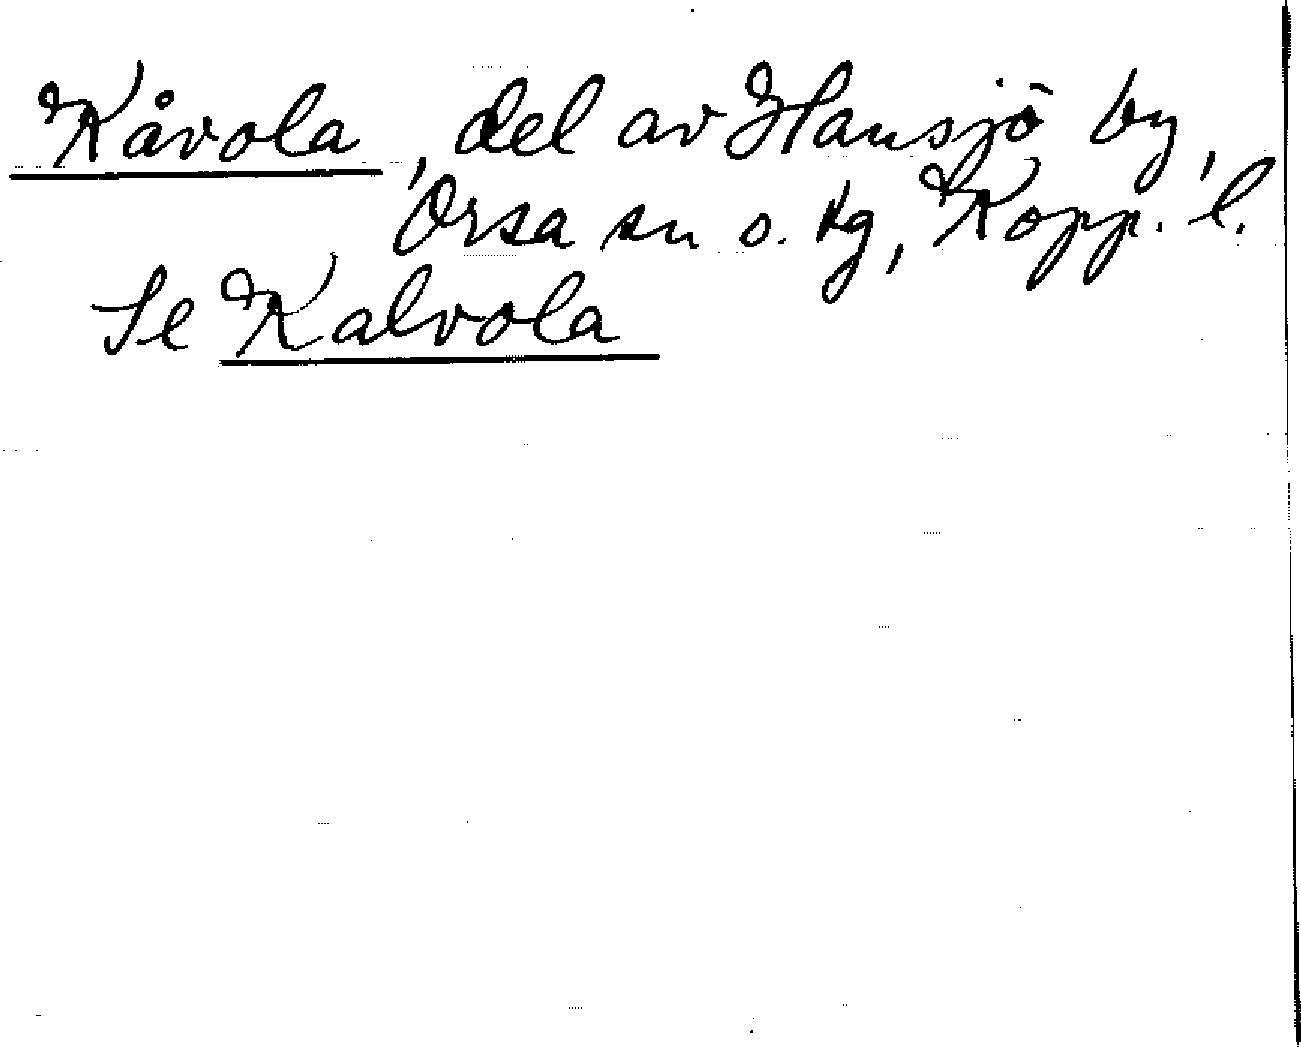 Kåvola, del av Hansjö by,
Orsa sn o. tg, Kopp. l.
Se Kalvola